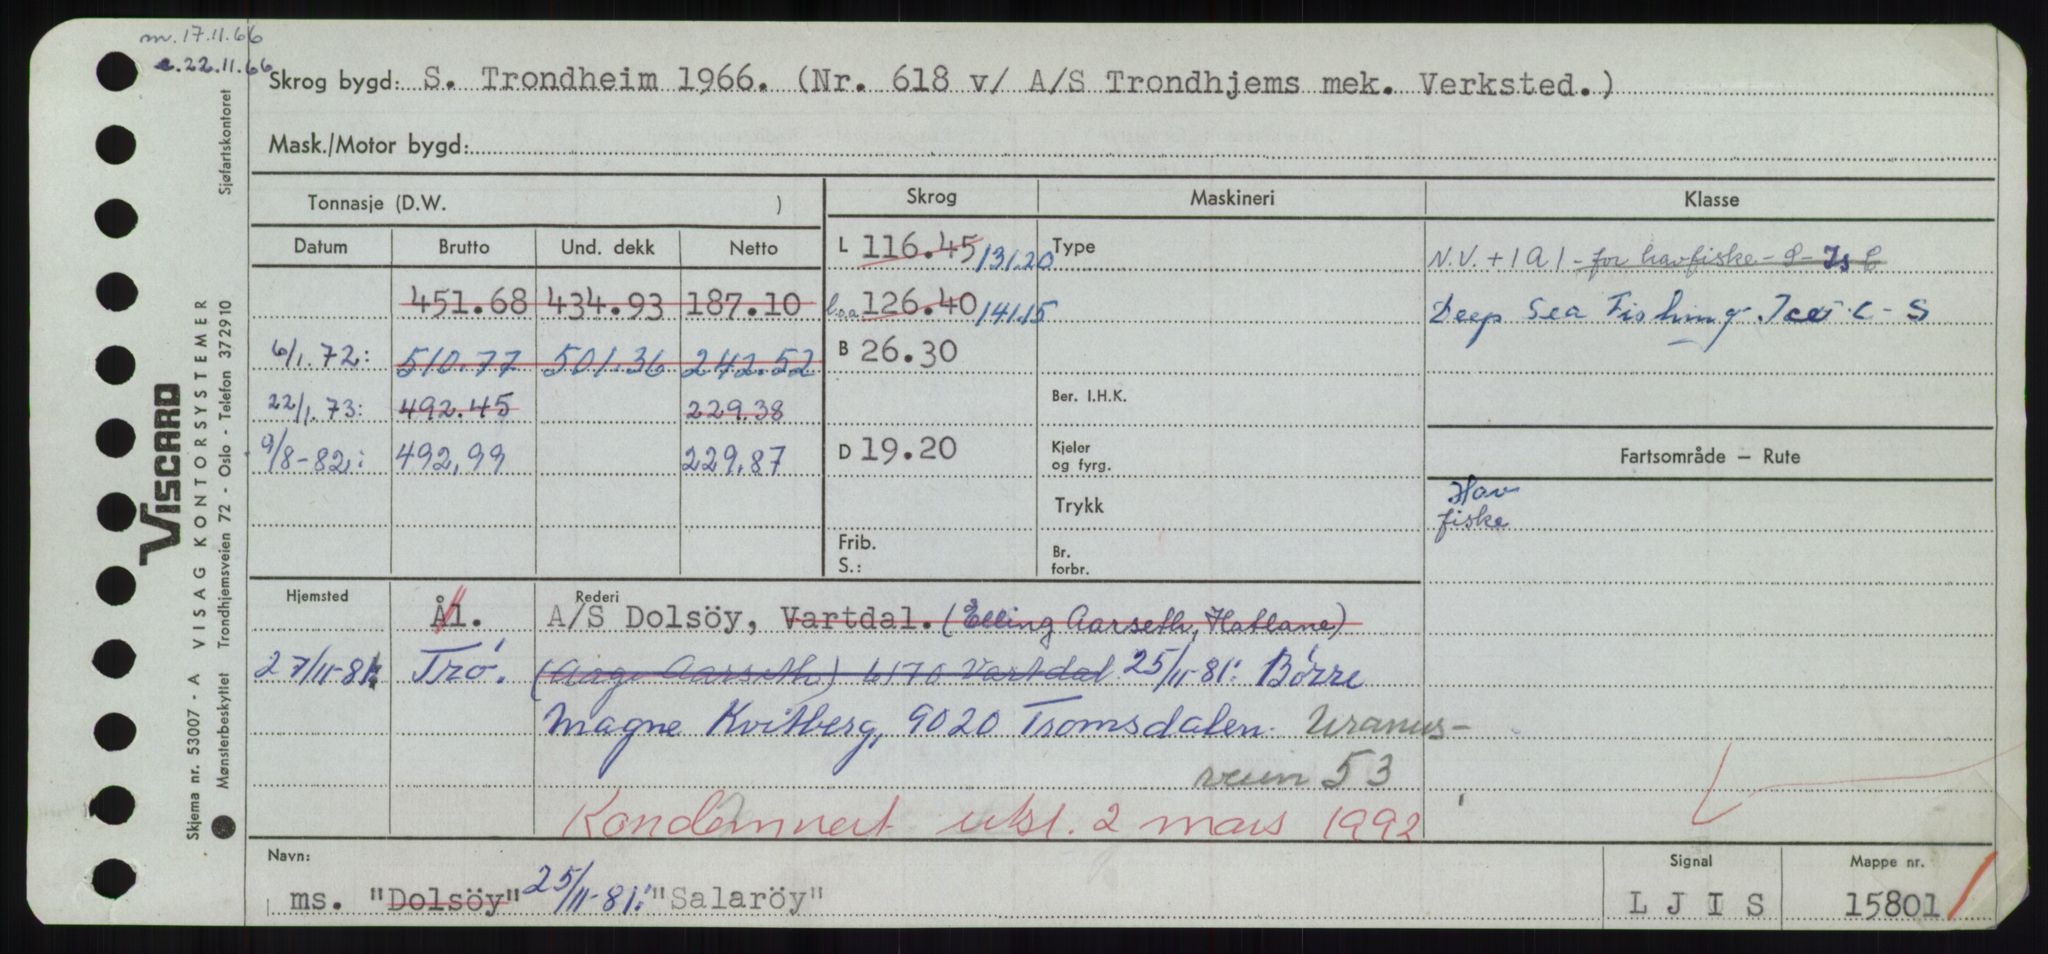 m. 17.11.66
e. 22.11.66
Skrog bygd: S. Trondheim 1966. (Nr. 618 v/ A/S Trondhjems mek. Verksted.)
Mask./Motor bygd:
Tonnasje (D.W. )
Skrog Maskineri Klasse
Datum Brutto Und. dekk Netto
L 116.45 131.20 Type
N.V. + 1A1 - for havfiske - S - Is C
451.68 434.93 187.10
l.o.a 126.40 141.15
Deep Sea Fishing Ice C - S
6/1.72: 510.77 501.36 242.52
B 26.30
22/1.73: 492.45 229.38
Ber. I.H.K.
9/8-82: 492,99 229,87
D 19.20
Kjeler
og fyrg.
Fartsområde — Rute
Trykk
Hav
fiske
Frib.
S.:
Br.
forbr.
Hjemsted Rederi
Ål. A/S Dolsöy, Vartdal. (Elling Aarseth, Hatlane)
27/11-81 Trö. (Aage Aarseth) 6170 Vartdal 25/11-81: Börre
Magne Kvitberg, 9020 Tromsdalen. Uranus-
veien 53
Kondemnert utsl. 2 mars 1992
Navn: Signal Mappe nr.
ms. "Dolsöy" 25/11-81: "Salaröy" L J I S 15801
VISCARD
VISAG KONTORSYSTEMER
Skjema nr. 53007 - A
Mønsterbeskyttet Trondhjemsveien 72 - Oslo - Telefon 372910 Sjøfartskontoret